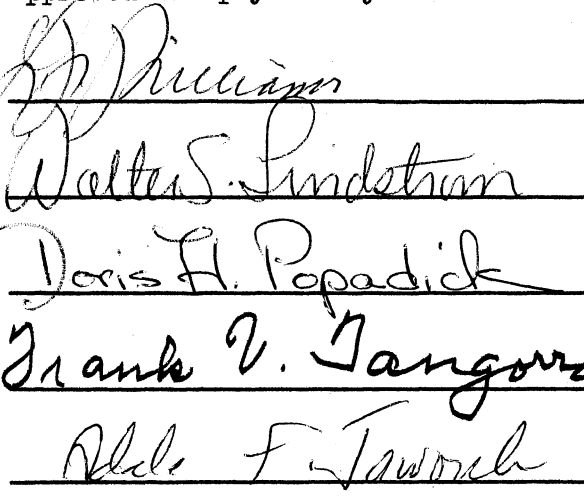 Williams
Walter S. Lindstrom
Doris H. Popadick
Frank V. Tangorra
F.